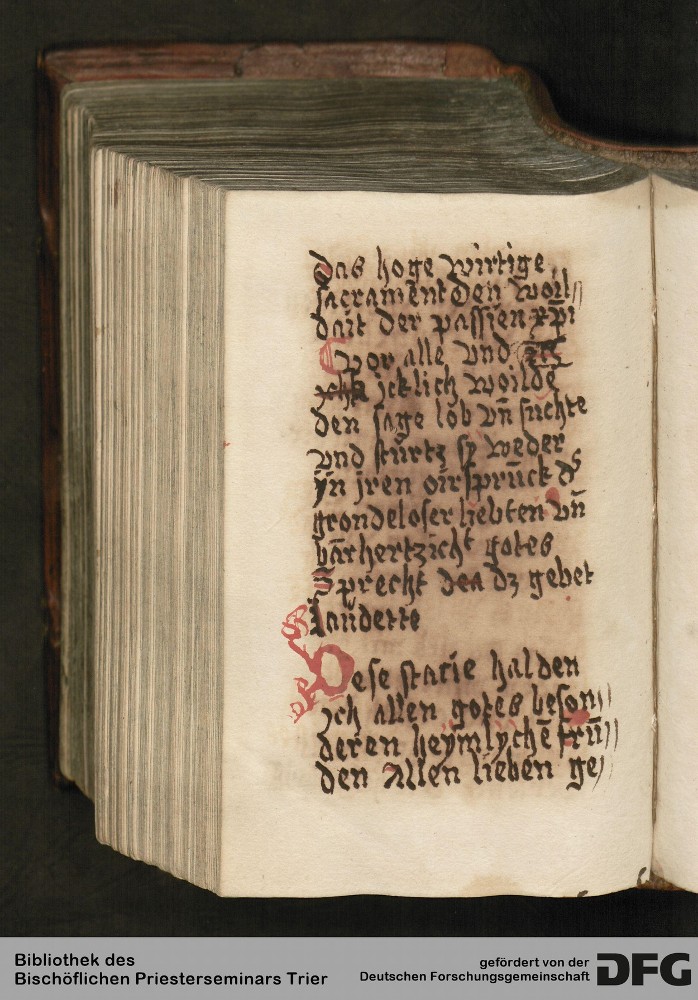 das hoge wirtige
sacrament den woil
dait der passien xp̄i
vor alle vnd
jcklich woilde
den sage lob vn̄ suchte
vnd sturtz sy weder
yn jren oirsprūck d
grondeloser liebten vn̄
bārhertzicht gotes
Sprecht den dz gebet
laudette
Dese statie halden
jch allen gotes beson
deren heymlychē frū
den allen lieben ge
Bibliothek des
Bischöflichen Priesterseminars Trier
gefördert von der
Deutschen Forschungsgemeinschaft
DFG